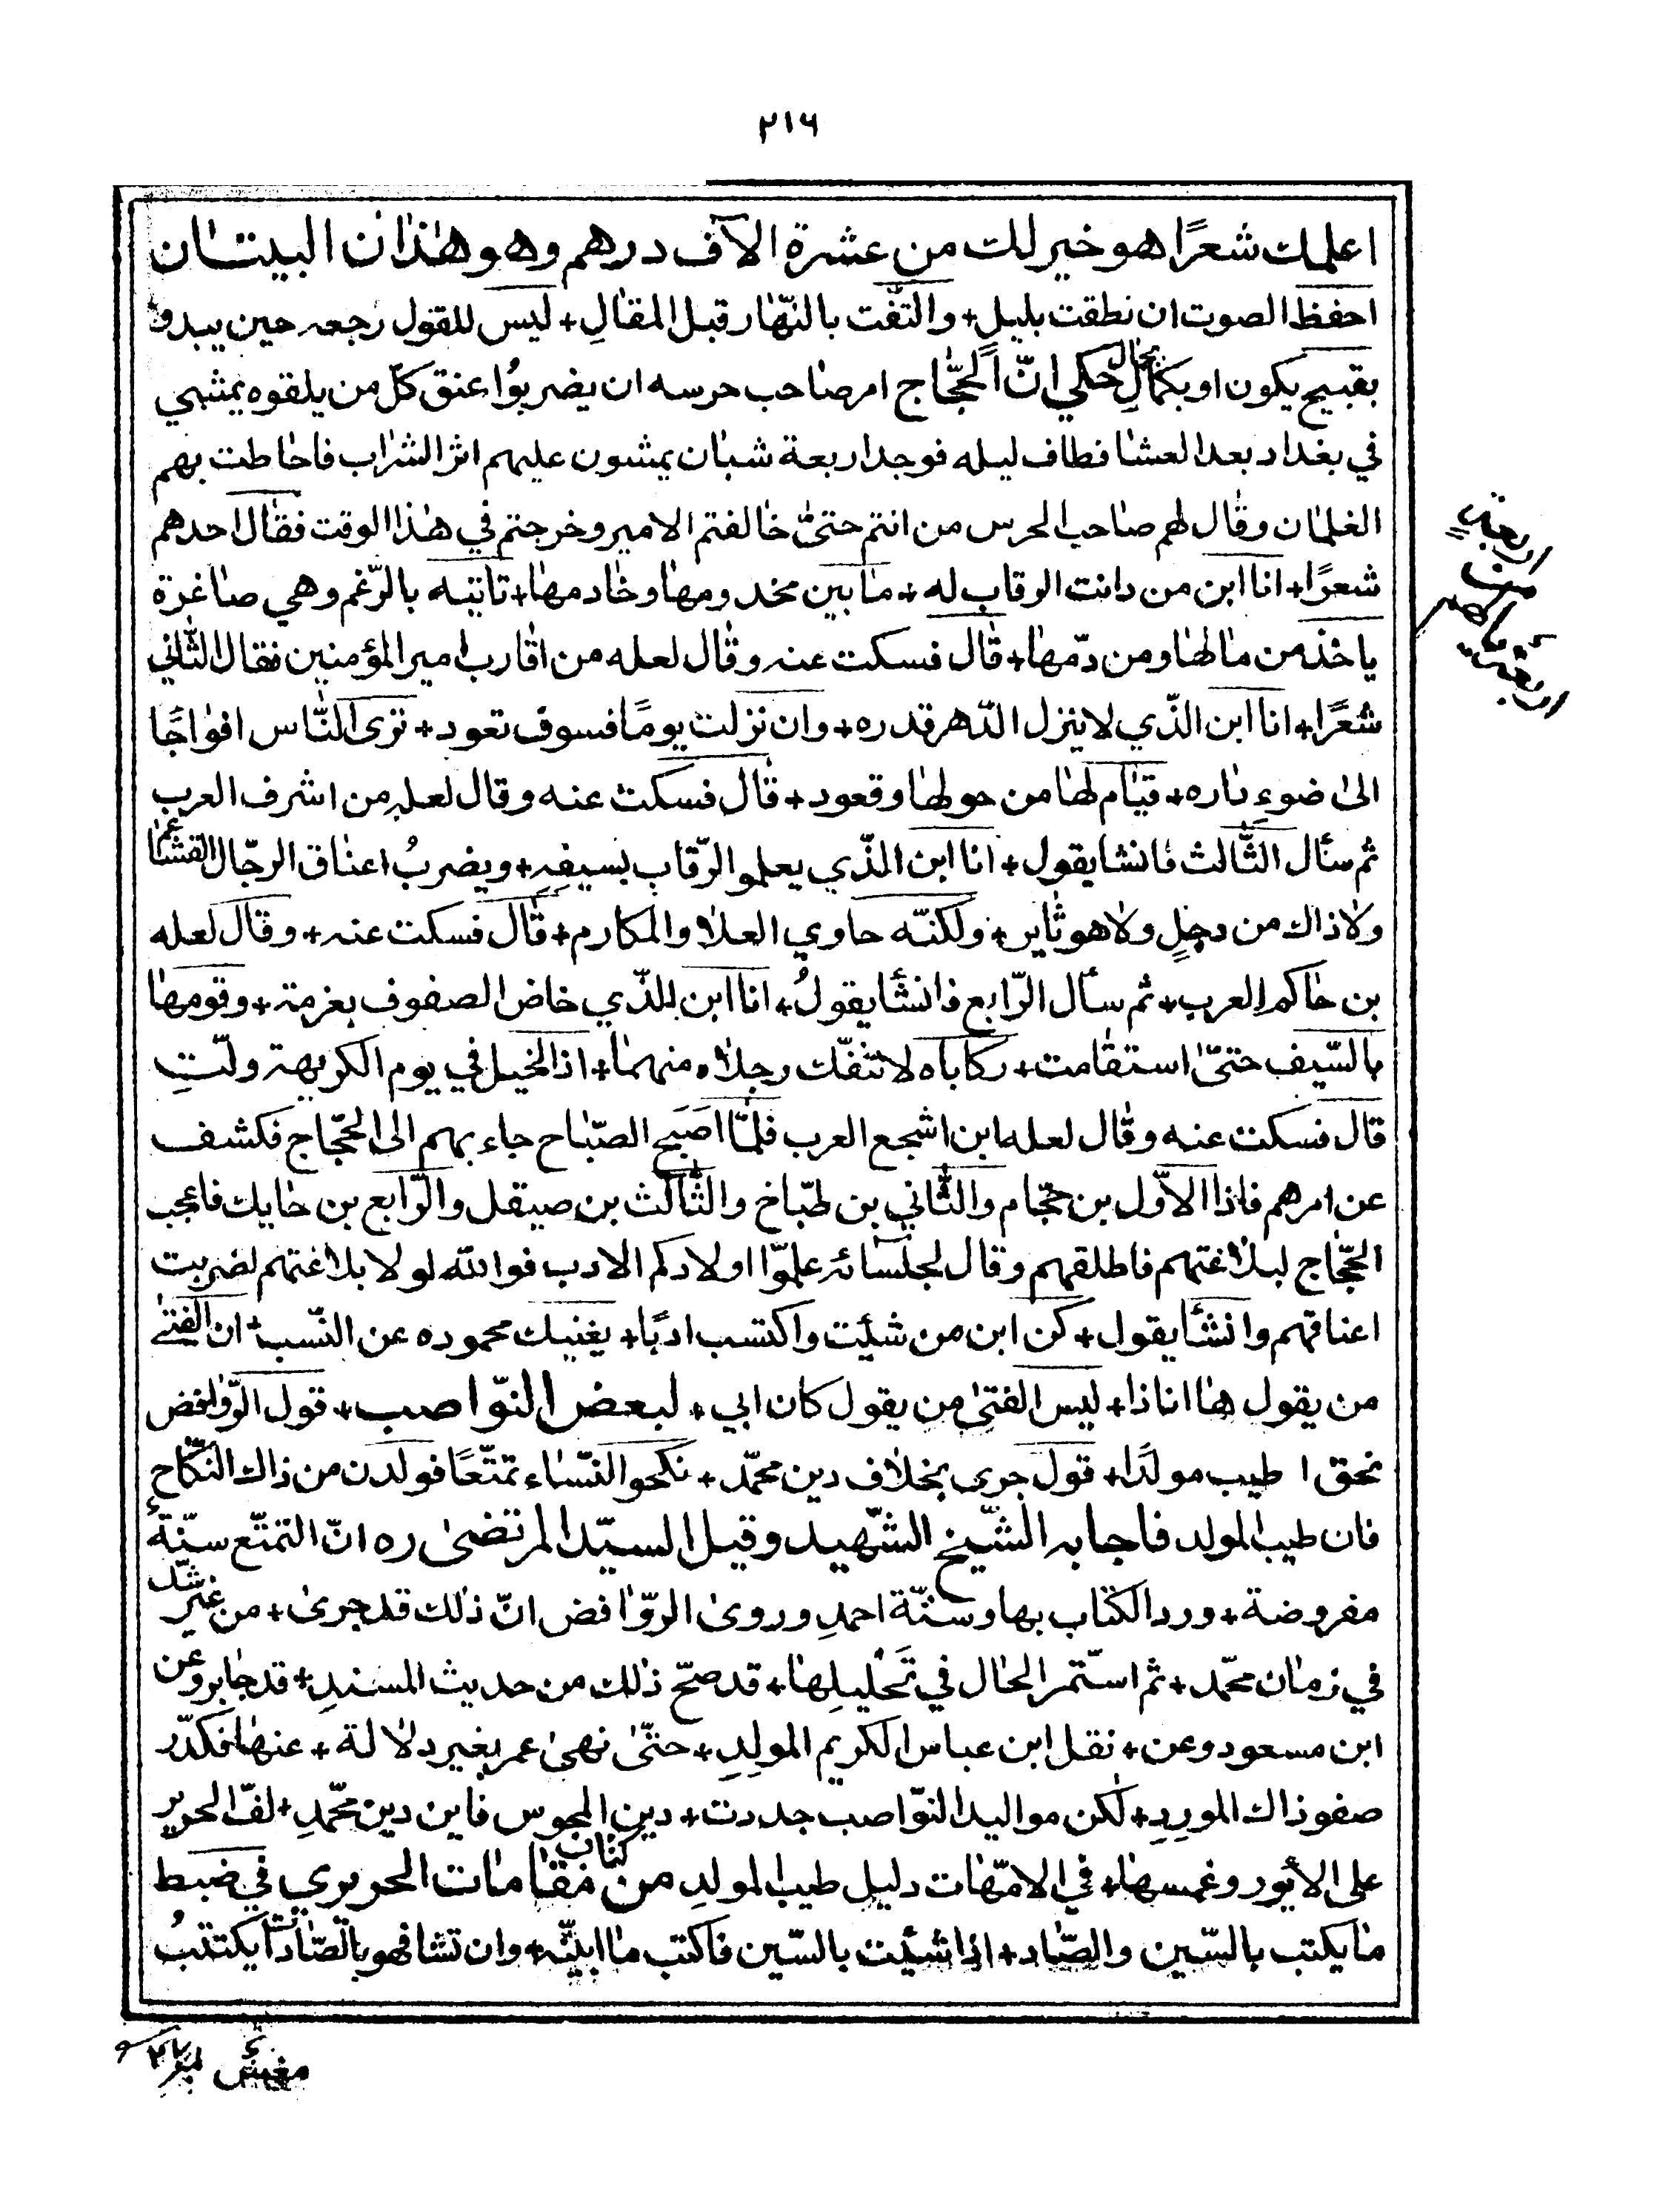 ٢١٦
اعلمك شعرًا هو خير لك من عشرة الآف درهم وهو هٰذان البيتان
احفظ الصوت ان نطقت بليل+ والتفّت بالنّهار قبل المقالِ+ ليس للقول رجعه حين يبدو
بقبيح يكون او بجمال حكي انّ الحجّاج امر صاحب حرسه ان يضربوُا عنق كلّ من يلقوه يمشي
في بغداد بعد العشا فطاف ليله فوجد اربعة شبان يمشون عليهم اثر الشراب فاحاطت بهم
الغلمان وقال لهم صاحب الحرس من انتم حتىّ خالفتم الامير وخرجتم في هٰذا الوقت فقال احدهم
شعرًا+ انا ابن من دانت الرقاب له+ ما بين مخدومها وخادمها+ تاتيه بالرّغم وهي صاغرة
ياخذ من مالها ومن دمّها+ قال فسكت عنه وقال لعله من اقارب امير المؤمنين فقال الثّاني
شعرًا+ انا ابن الذّي لا ينزل الدّهر قدره+ وان نزلت يومًا فسوف تعود+ ترى النّاس افواجًا
الىٰ ضوءِ ناره+ قيام لها من حولها وقعود+ قال فسكت عنه وقال لعله من اشرف العرب
ثم سئال الثّالث فانشا يقول+ انا ابن الذّي يعلو الرّقاب بسيفهِ+ ويضربُ اعناق الرجّال القشاعم
ولا ذاك من دجلٍ ولا هو ثاير+ ولكنّه حاوي العلا والمكارم+ قال فسكت عنه+ وقال لعله
بن حاكم العرب+ ثم سأل الرّابع فانشأ يقولُ+ انا ابن الذّي خاض الصفوف بعزمة+ وقومها
بالسّيف حتىّ استقامت+ ركاباه لا تنفّك رجلاه منهما+ اذ الخيل في يوم الكريهة ولتّ
قال فسكت عنه وقال لعله ابن اشجع العرب فلمّا اصَبح الصّباح جاء بهم الى الحجّاج فكشف
عن امرهم فاذا الاوّل بن حجّام والثّاني بن طبّاخ والثّالث بن صيقل والرّابع بن حايك فاعجب
الحجّاج لبلاغتهم فاطلقهم وقال لجلسائه علموّا اولادكم الادب فوالله لولا بلاغتهم لضربت
اعناقهم وانشأ يقول+ كن ابن من شئيت واكتسب ادبًا+ يغنيك محموده عن النّسب+ ان الفتىٰ
من يقول ها انا ذا+ ليس الفتىٰ من يقول كان ابي+ لبعض النّواصب+ قول الرّوافض
نحق ا طيب مولدًا+ قول جرى بخلاف دين محمّد+ نكحو النّساء تمتّعًا فولدن من ذاك النكّاح
فان طيب المولد فاجابه الشّيخ الشّهيد وقيل السيّد المرتضىٰ ره انّ التمتّع سنّةٌ
مفروضة+ ورد الكتاب بها وسنّة احمدِ وروىٰ الروّافض انّ ذلك قد جرىٰ+ من غير شك
في زمان محمّد+ ثم استّمر الحال في تَحليلِها+ قد صحّ ذلك من حديث المسندِ+ قد جابر وعن
ابن مسعود وعن+ نقل ابن عباس الكريم المولِدِ+ حتّىٰ نهىٰ عمر بغير دلالة+ عنها فكدّر
صفو ذاك الموردِ+ لكن مواليد النوّاصب جددت+ دين المجوس فاين دين محمّدِ+ لفّ الحرير
على الأيور وغمسها+ في الامّهات دليل طيب المولدِ من كتاب مقامات الحريري في ضبط
ما يكتب بالسّين والصّاد+ اذا شئيت بالسّين فاكتب ما ابيّنه+ وان تشا فهو بالصّادات يكتتبُ